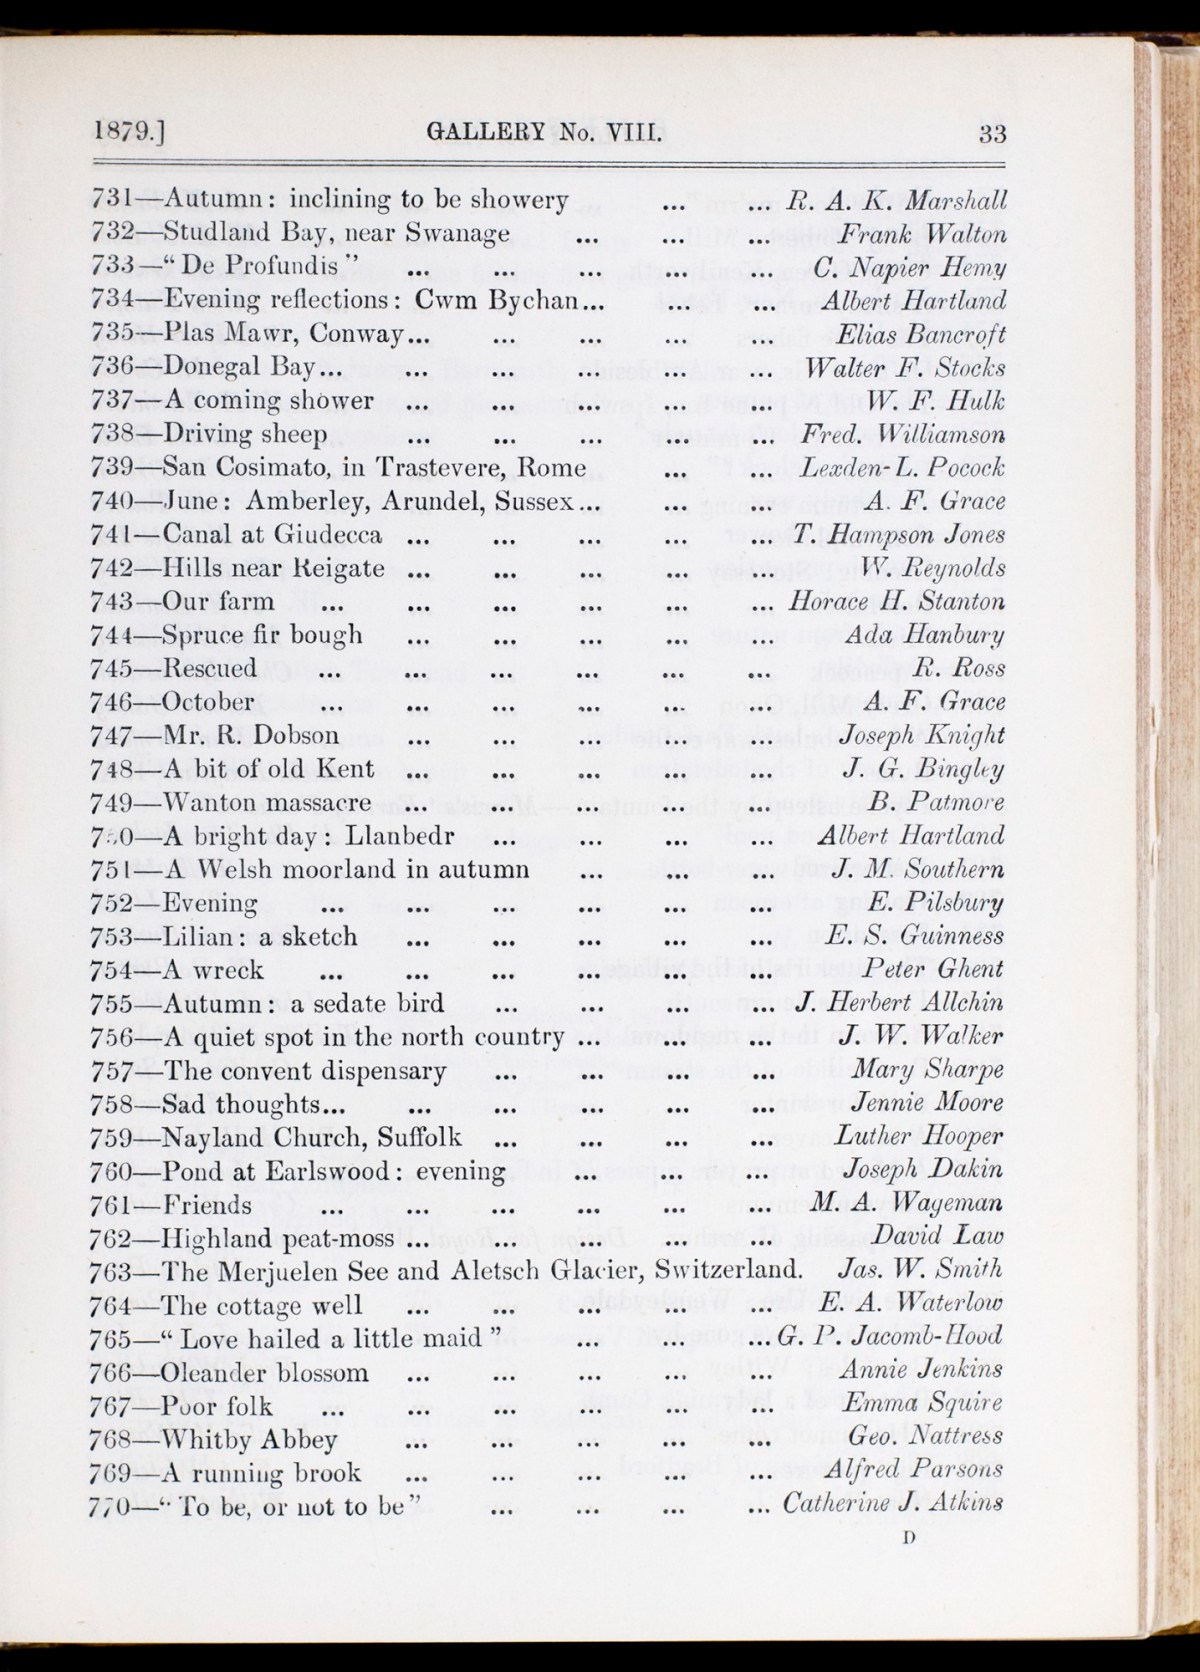 1879.] GALLERY No. VIII. 33
731—Autumn: inclining to be showery ... ... R. A. K. Marshall
732—Studland Bay, near Swanage ... ... ... Frank Walton
733—“De Profundis” ... ... ... ... ... C. Napier Hemy
734—Evening reflections: Cwm Bychan... ... ... Albert Hartland
735—Plas Mawr, Conway... ... ... ... ... Elias Bancroft
736—Donegal Bay... ... ... ... ... ... Walter F. Stocks
737—A coming shower ... ... ... ... ... W. F. Hulk
738—Driving sheep ... ... ... ... ... Fred. Williamson
739—San Cosimato, in Trastevere, Rome ... ... Lexden-L. Pocock
740—June: Amberley, Arundel, Sussex... ... ... A. F. Grace
741—Canal at Giudecca ... ... ... ... ... T. Hampson Jones
742—Hills near Reigate ... ... ... ... ... W. Reynolds
743—Our farm ... ... ... ... ... ... Horace H. Stanton
744—Spruce fir bough ... ... ... ... ... Ada Hanbury
745—Rescued ... ... ... ... ... ... R. Ross
746—October ... ... ... ... ... ... A. F. Grace
747—Mr. R. Dobson ... ... ... ... ... Joseph Knight
748—A bit of old Kent ... ... ... ... ... J. G. Bingley
749—Wanton massacre ... ... ... ... ... B. Patmore
750—A bright day: Llanbedr ... ... ... ... Albert Hartland
751—A Welsh moorland in autumn ... ... ... J. M. Southern
752—Evening ... ... ... ... ... ... E. Pilsbury
753—Lilian: a sketch ... ... ... ... ... E. S. Guinness
754—A wreck ... ... ... ... ... ... Peter Ghent
755—Autumn: a sedate bird ... ... ... ... J. Herbert Allchin
756—A quiet spot in the north country ... ... ... J. W. Walker
757—The convent dispensary ... ... ... Mary Sharpe
758—Sad thoughts... ... ... ... ... ... Jennie Moore
759—Nayland Church, Suffolk ... ... ... ... Luther Hooper
760—Pond at Earlswood: evening ... ... ... Joseph Dakin
761—Friends ... ... ... ... ... ... M. A. Wageman
762—Highland peat-moss ... ... ... ... ... David Law
763—The Merjuelen See and Aletsch Glacier, Switzerland. Jas. W. Smith
764—The cottage well ... ... ... ... ... E. A. Waterlow
765—“Love hailed a little maid” ... ... ... G. P. Jacomb-Hood
766—Oleander blossom ... ... ... ... ... Annie Jenkins
767—Poor folk ... ... ... ... ... ... Emma Squire
768—Whitby Abbey ... ... ... ... ... Geo. Nattress
769—A running brook ... ... ... ... ... Alfred Parsons
770—“To be, or not to be” ... ... ... ... Catherine J. Atkins
D